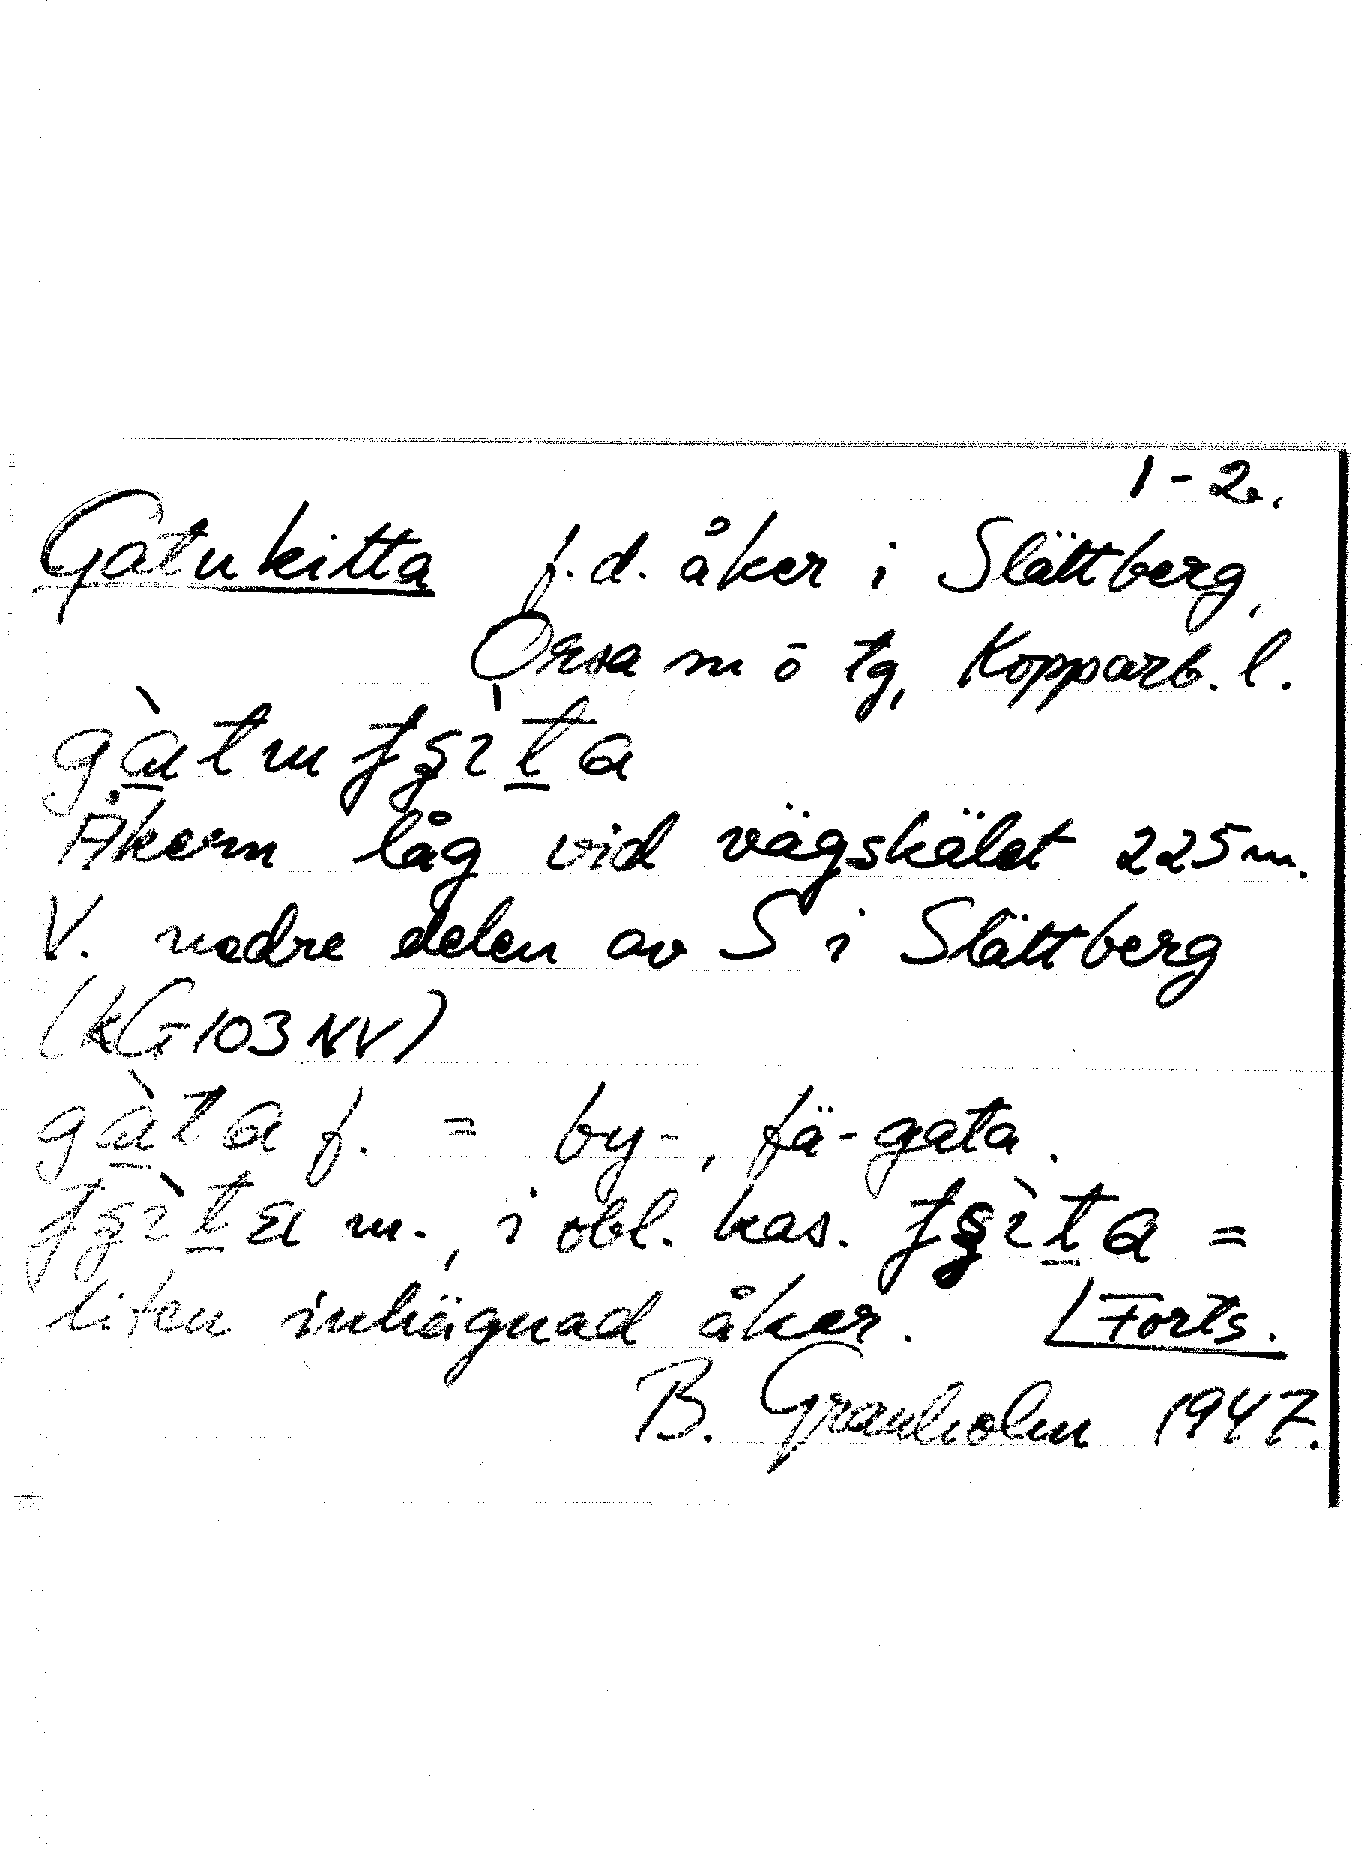 1-2.
Gatukitta f.d. åker i Slättberg,
Orsa sn ö tg, Kopparb. l.
Åkern låg vid vägskälet 225 m.
V. nedre delen av S i Slättberg
(kG 103 NV)
gàta f. = by-, fä-gata.
m., i obl. kas. =
liten inhägnad åker. Forts.
B. Granholm 1947.